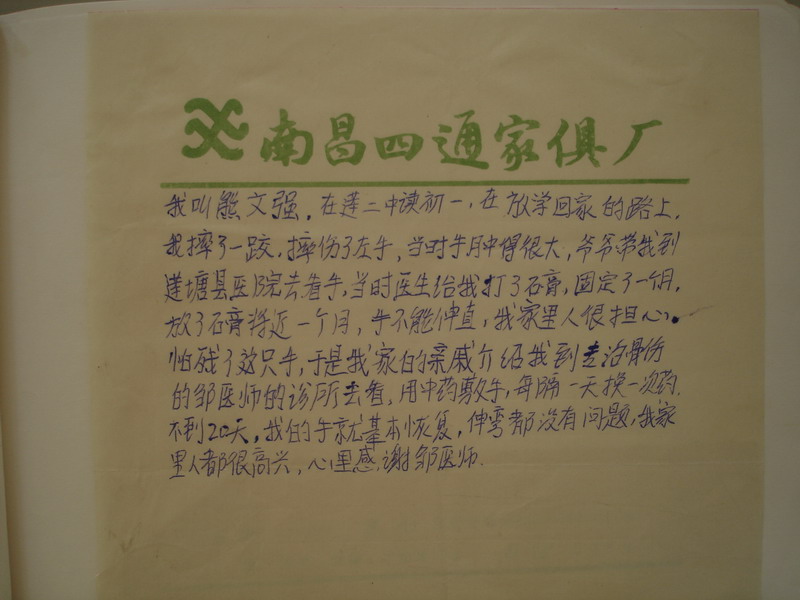 南昌四通家俱厂
我叫熊文强，在莲二中读初一，在放学回家的路上，
我摔了一跤，摔伤了左手，当时手肿得很大，爷爷带我到
莲塘县医院去看手，当时医生给我打了石膏，固定了一个月，
放了石膏将近一个月，手不能伸直，我家里人很担心，
怕残了这只手，于是我家的亲戚介绍我到专治骨伤
的邹医师的诊所去看，用中药敷手，每隔一天换一次药，
不到20天，我的手就基本恢复，伸弯都没有问题，我家
里人都很高兴，心里感谢邹医师.